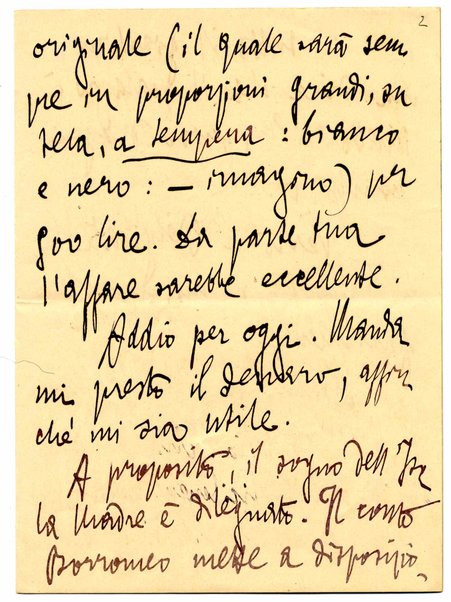 2
originale (il quale sarà sem
pre in proporzioni grandi, su
tela, a tempera : bianco
e nero : — imagino) per
900 lire. Da parte tua
l'affare sarebbe eccellente.
Addio per oggi. Manda
mi presto il denaro, affin
ché mi sia utile.
A proposito, il sogno dell'Iso
la Madre è dileguato. Il conte
Borromeo mette a disposizio-